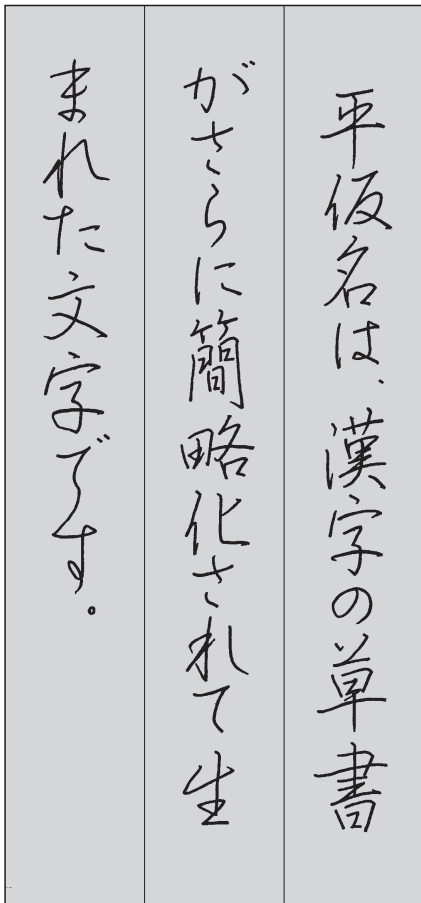 平仮名は、漢字の草書
がさらに簡略化されて生
まれた文字です。